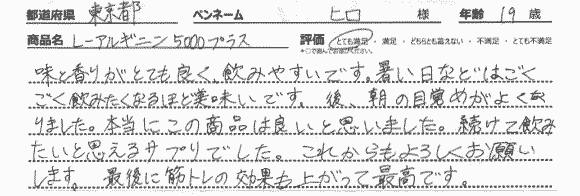 都道府県 東京都 ペンネーム ヒロ 様 年齢 19 歳
商品名 L-アルギニン5000プラス 評価 とても満足 ・ 満足 ・ どちらとも言えない ・ 不満足 ・ とても不満足
*○で囲んでお選びください。
味と香りがとても良く、飲みやすいです。暑い日などはごく
ごく飲みたくなるほど美味いです。後、朝の目覚めがよくな
りました。本当にこの商品は良いと思いました。続けて飲み
たいと思えるサプリでした。これからもよろしくお願い
します。最後に筋トレの効果も上がって最高です。